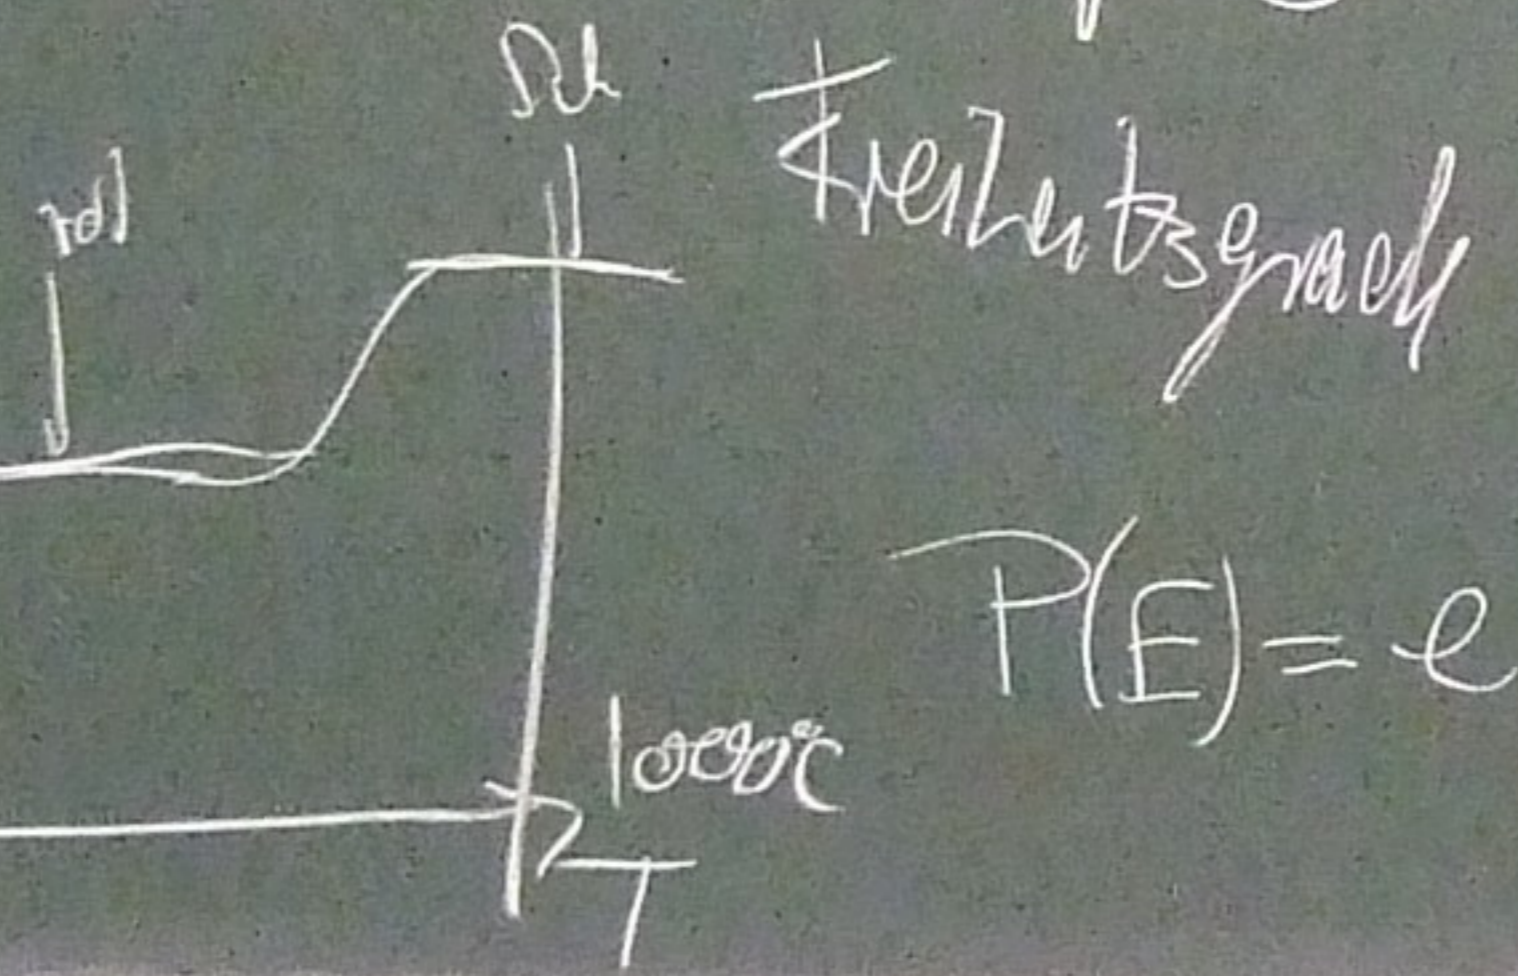 rot
Freiheitsgrad
P(E) = e
1000°C
T